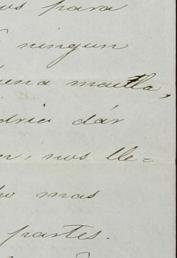 os para
ningun
una maella,
dria dár
n, nos lle=
mas
partes.